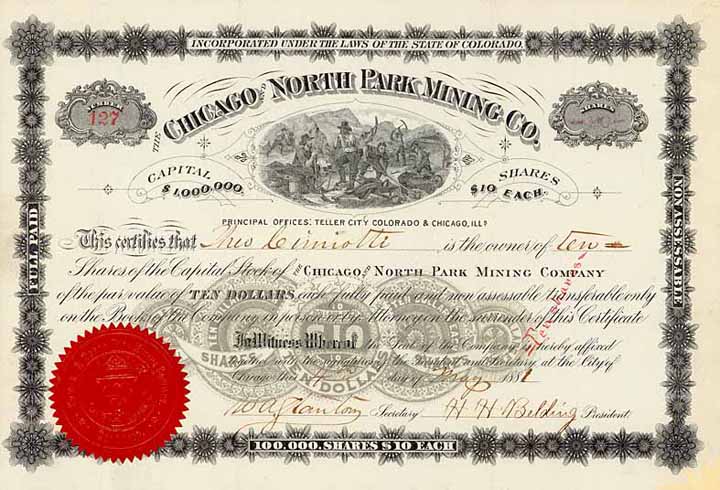 INCORPORATED UNDER THE LAWS OF THE STATE OF COLORADO.
NUMBER
127
SHARES
THE CHICAGO AND NORTH PARK MINING CO.
CAPITAL
$1,000,000.
SHARES
$10 EACH.
PRINCIPAL OFFICES: TELLER CITY COLORADO & CHICAGO, ILLS
This certifies that Theo Cimiotti is the owner of ten
Shares of the Capital Stock of THE CHICAGO AND NORTH PARK MINING COMPANY
of the par value of TEN DOLLARS each fully paid and non assessable transferable only
on the Books of the Company in person or by Attorney on the surrender of this Certificate
In Witness Whereof the Seal of the Company is hereby affixed
together with the signatures of the President and Secretary at the City of
Chicago this day of May 1881
Secretary H H Belding President
100,000 SHARES $10 EACH
FULL PAID
NON ASSESSABLE
Ten Shares
SHARES TEN DOLLARS